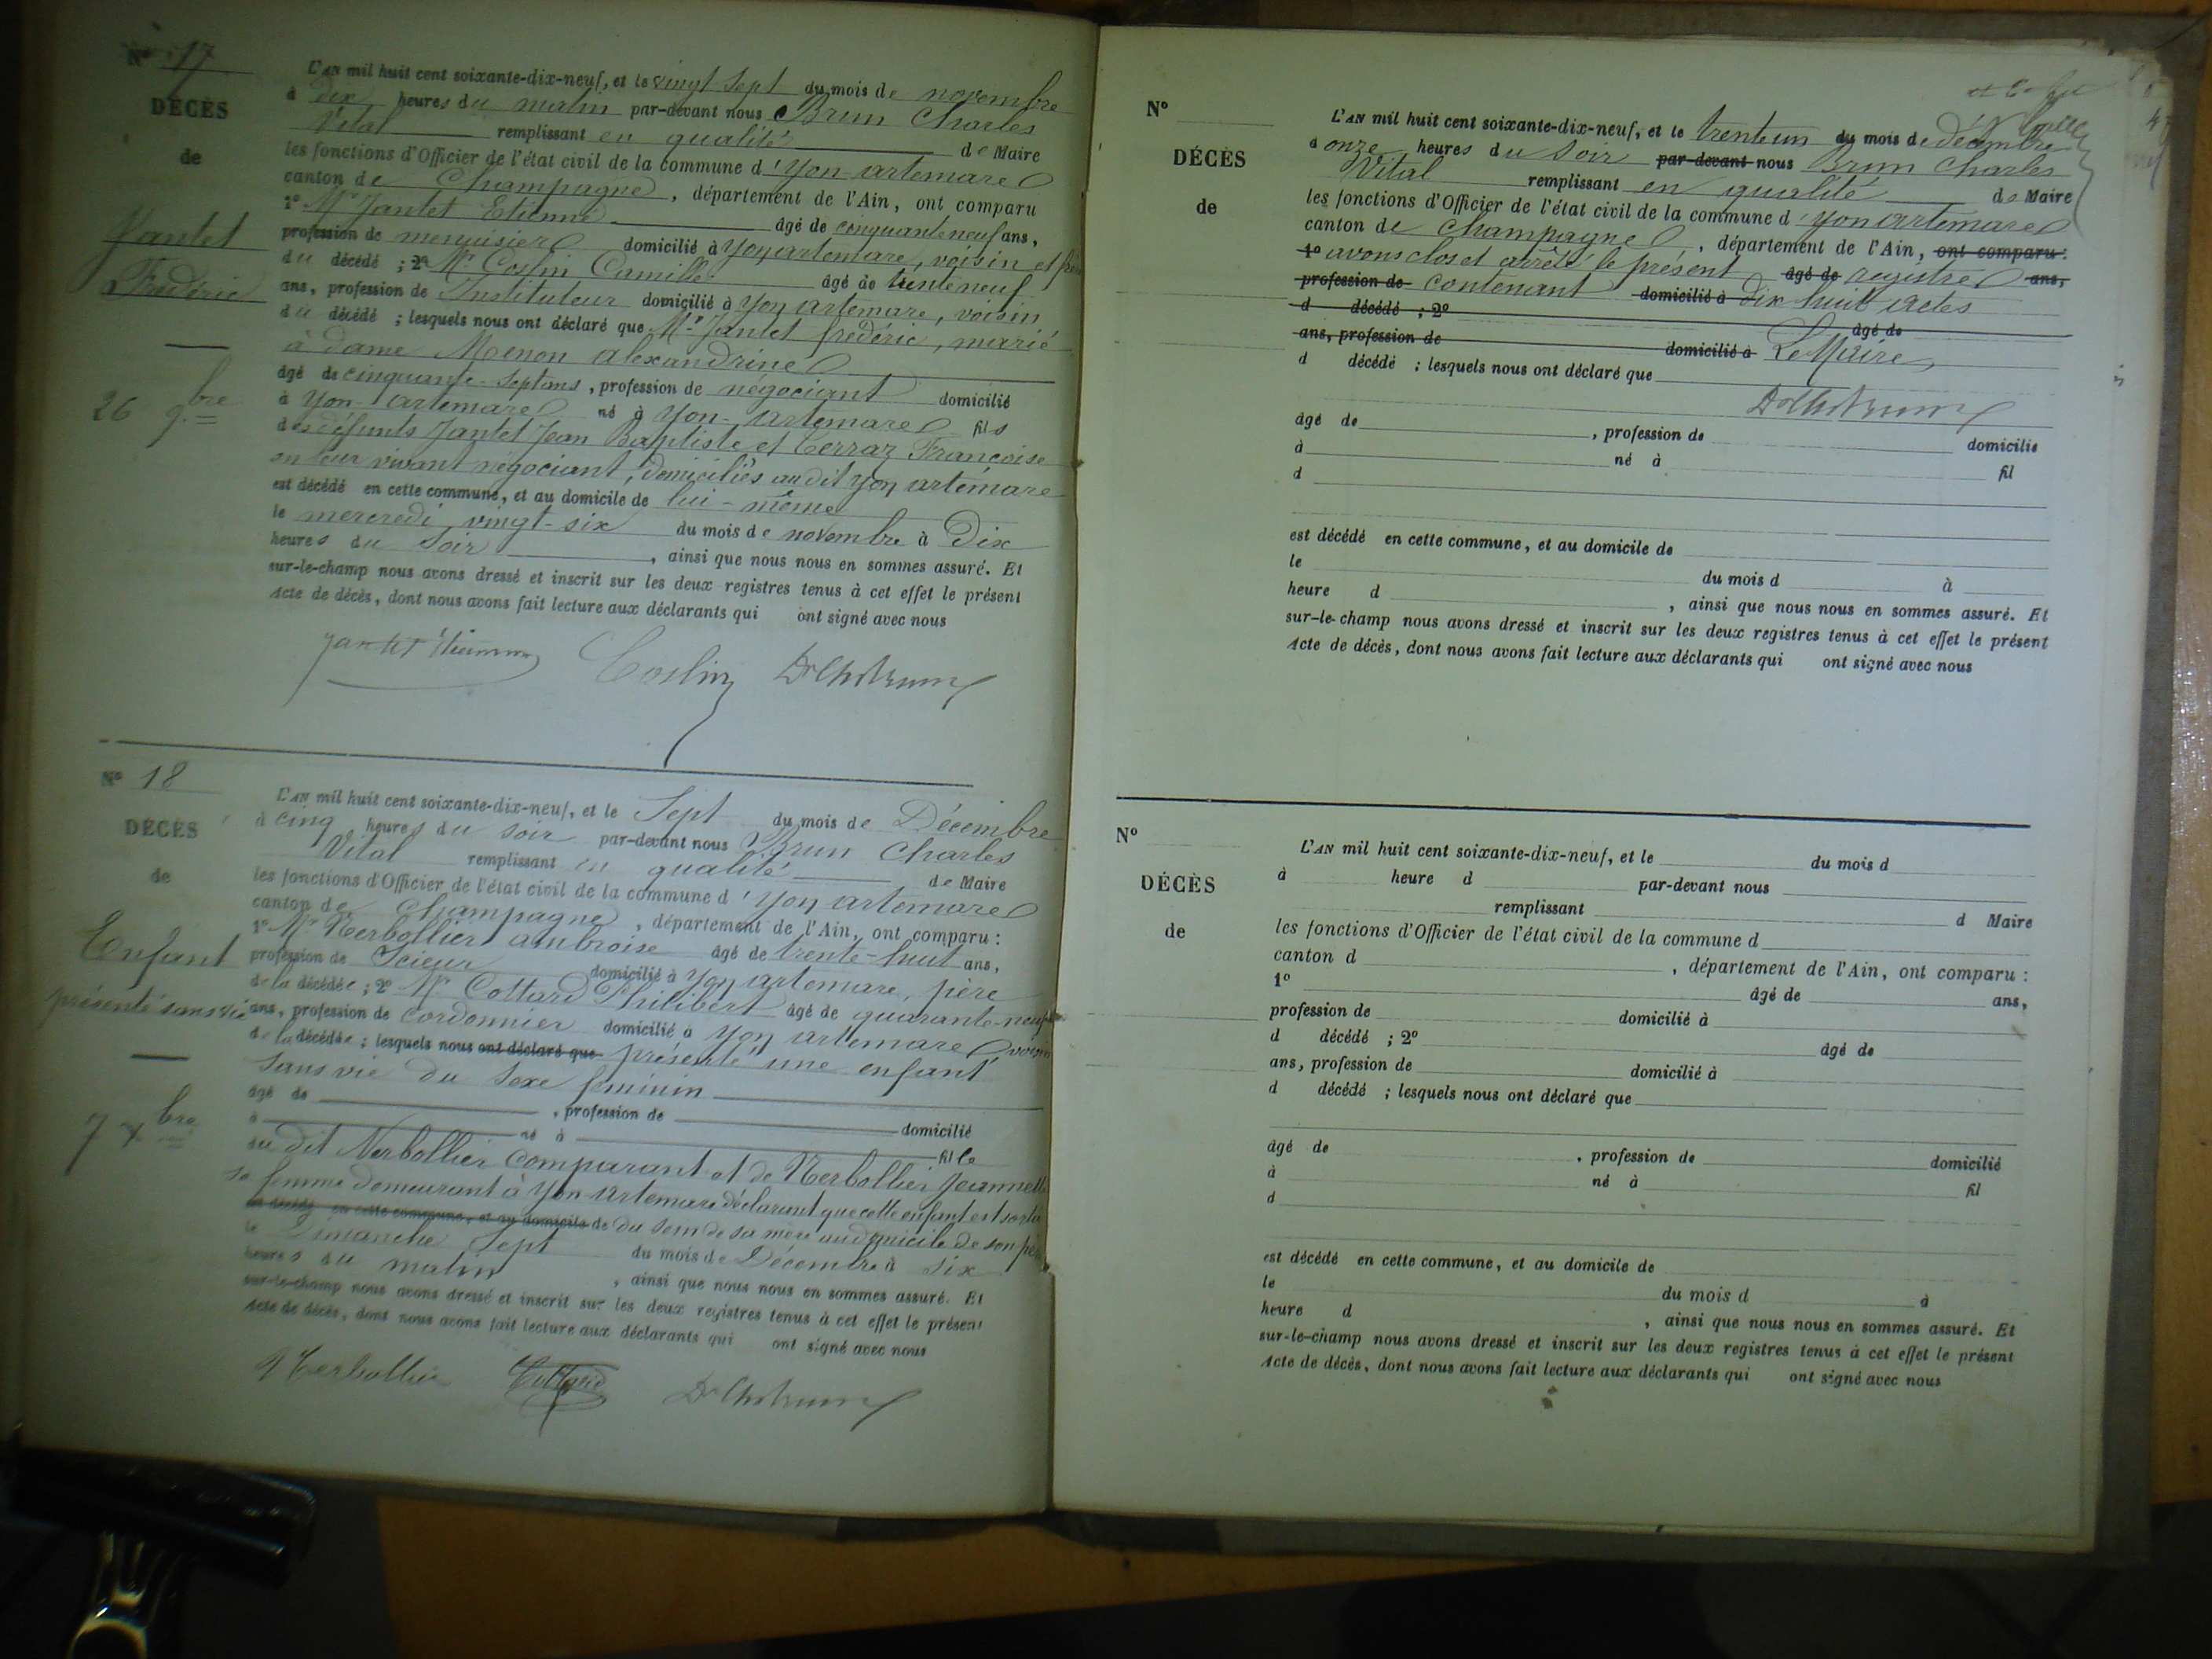 N° 17
DÉCÈS
de
Jantet
Frédéric
26 9.bre
L'AN mil huit cent soixante-dix-neuf, et le vingt sept du mois de novembre
à dix heures du matin par-devant nous Brun Charles
Vital remplissant en qualité de Maire
les fonctions d'Officier de l'état civil de la commune d'Yon artemare
canton de Champagne, département de l'Ain, ont comparu
1° Mr Jantet Etienne âgé de cinquante neuf ans,
profession de menuisier domicilié à Yon artemare, voisin et frère
du décédé ; 2° Mr Coslin Camille âgé de trente neuf
ans, profession de Instituteur domicilié à Yon artemare, voisin
du décédé ; lesquels nous ont déclaré que Mr Jantet frédéric, marié
à dame Monon alexandrine
âgé de cinquante-sept ans, profession de négociant domicilié
à Yon-artemare né à Yon-artemare fils
des défunts Jantet Jean Baptiste et Cerraz Françoise
en leur vivant négociant, domiciliés au dit Yon artemare
est décédé en cette commune, et au domicile de lui-même
le mercredi vingt-six du mois de novembre à Dix
heures du soir, ainsi que nous nous en sommes assuré. Et
sur-le-champ nous avons dressé et inscrit sur les deux registres tenus à cet effet le présent
Acte de décès, dont nous avons fait lecture aux déclarants qui ont signé avec nous
Jantet Etienne Coslin Dr Ch Brun
N° 18
DÉCÈS
de
Enfant
présenté sans vie
7 xbre
L'AN mil huit cent soixante-dix-neuf, et le Sept du mois de Décembre
à cinq heures du soir par-devant nous Brun Charles
Vital remplissant en qualité de Maire
les fonctions d'Officier de l'état civil de la commune d'Yon artemare
canton de Champagne, département de l'Ain, ont comparu :
1° Mr Nerbollier ambroise âgé de trente-huit ans,
profession de Scieur domicilié à Yon artemare, père
de la décédée ; 2° Mr Cottard Philibert âgé de quarante-neuf
ans, profession de cordonnier domicilié à Yon artemare voisin
de la décédée ; lesquels nous ont déclaré que présenté une enfant
sans vie du sexe féminin
âgé de , profession de domicilié
à né à fille
du dit Nerbollier comparant et de Nerbollier Jeannette
sa femme demeurant à Yon-artemare déclarant que cette enfant est sortie
est décédé en cette commune, et au domicile de du sein de sa mère au domicile de son père
le Dimanche Sept du mois de Décembre à six
heures du matin, ainsi que nous nous en sommes assuré. Et
sur-le-champ nous avons dressé et inscrit sur les deux registres tenus à cet effet le présent
Acte de décès, dont nous avons fait lecture aux déclarants qui ont signé avec nous
Nerbollier Cottard Dr Ch Brun
N°
DÉCÈS
de
L'AN mil huit cent soixante-dix-neuf, et le trente un du mois de décembre
à onze heures du soir par-devant nous Brun Charles
Vital remplissant en qualité de Maire
les fonctions d'Officier de l'état civil de la commune d'Yon artemare
canton de Champagne, département de l'Ain, ont comparu :
1° avons clos et arrêté le présent âgé de registre ans,
profession de contenant domicilié à dix huit actes
d décédé ; 2° âgé de
ans, profession de domicilié à Le Maire
d décédé ; lesquels nous ont déclaré que
Dr Ch Brun
âgé de , profession de domicilié
à né à fil
d
est décédé en cette commune, et au domicile de
le du mois d à
heure d , ainsi que nous nous en sommes assuré. Et
sur-le-champ nous avons dressé et inscrit sur les deux registres tenus à cet effet le présent
Acte de décès, dont nous avons fait lecture aux déclarants qui ont signé avec nous
N°
DÉCÈS
de
L'AN mil huit cent soixante-dix-neuf, et le du mois d
à heure d par-devant nous
remplissant d Maire
les fonctions d'Officier de l'état civil de la commune d
canton d , département de l'Ain, ont comparu :
1° âgé de ans,
profession de domicilié à
d décédé ; 2° âgé de
ans, profession de domicilié à
d décédé ; lesquels nous ont déclaré que
âgé de , profession de domicilié
à né à fil
d
est décédé en cette commune, et au domicile de
le du mois d à
heure d , ainsi que nous nous en sommes assuré. Et
sur-le-champ nous avons dressé et inscrit sur les deux registres tenus à cet effet le présent
Acte de décès, dont nous avons fait lecture aux déclarants qui ont signé avec nous